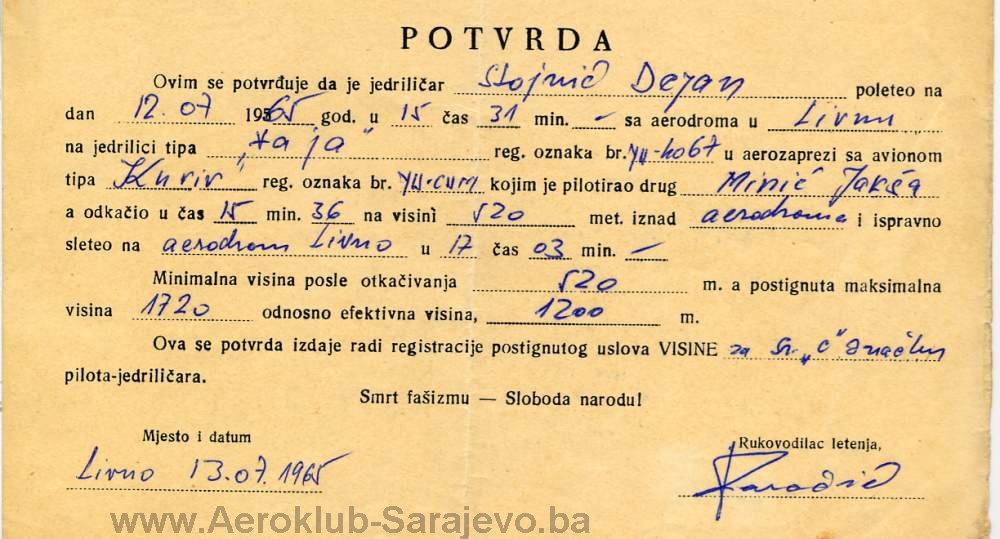 POTVRDA
Ovim se potvrđuje da je jedriličar Stojnić Dejan poleteo na
dan 12.07 1965 god. u 15 čas 31 min. — sa aerodroma u Livnu
na jedrilici tipa „Čajа" reg. oznaka br. YU-4067 u aerozaprezi sa avionom
tipa „Kurir" reg. oznaka br. YU-CUM kojim je pilotirao drug Minić Jakša
a odkačio u čas 15 min. 36 na visini 520 met. iznad aerodroma i ispravno
sleteo na aerodrom Livno u 17 čas 03 min. —
Minimalna visina posle otkačivanja 520 m. a postignuta maksimalna
visina 1720 odnosno efektivna visina, 1200 m.
Ova se potvrda izdaje radi registracije postignutog uslova VISINE za Sr. „C" značku
pilota-jedriličara.
Smrt fašizmu — Sloboda narodu!
Mjesto i datum
Rukovodilac letenja,
Livno 13.07.1965
www.Aeroklub-Sarajevo.ba